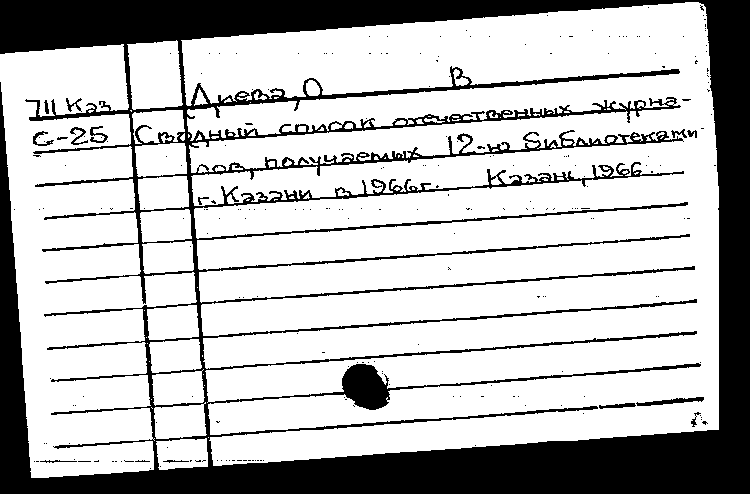 711 Каз. Диева, О В
С-25 Сводный список отечественных журна-
лов, получаемых 12-ю библиотеками
г. Казани в 1966г. Казань, 1966.